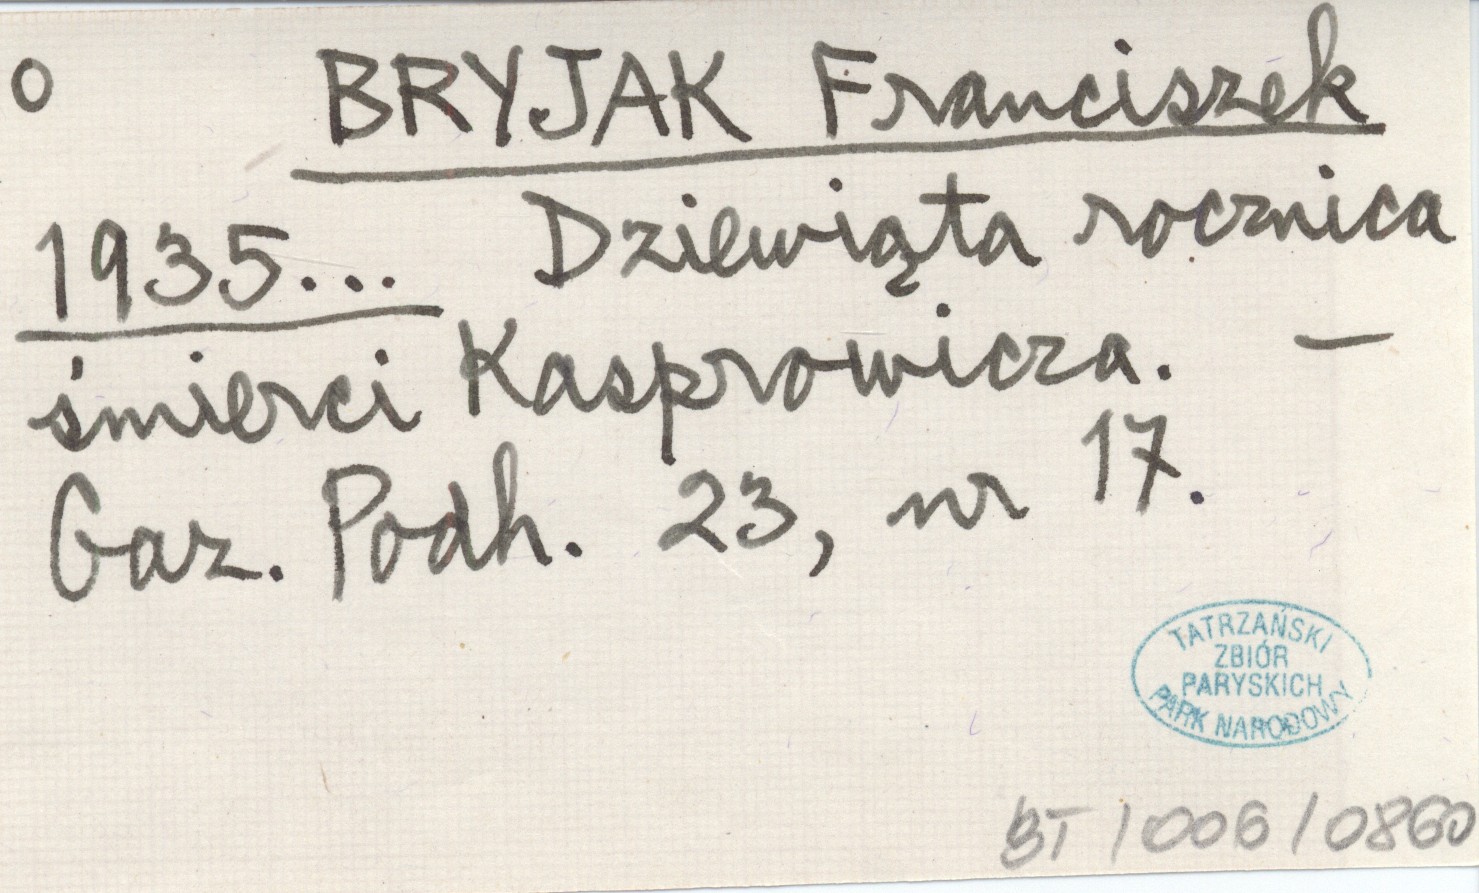 o BRYJAK Franciszek
1935... Dziewiąta rocznica
śmierci Kasprowicza. —
Gaz. Podh. 23, nr 17.
TATRZAŃSKI
ZBIÓR
PARYSKICH
PARK NARODOWY
BT/006/0860